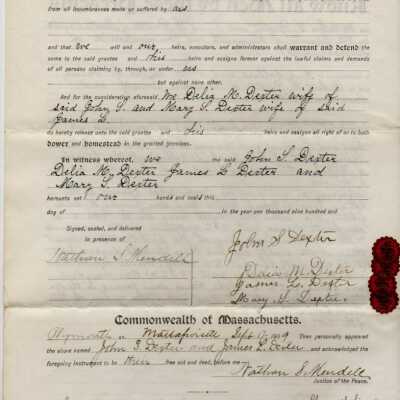 from all incumbrances made or suffered by us
and that we will and our heirs, executors, and administrators shall warrant and defend the
same to the said grantee and his heirs and assigns forever against the lawful claims and demands
of all persons claiming by, through, or under us
but against none other.
And for the consideration aforesaid We Delia M. Dexter wife of
said John S. and Mary S. Dexter wife of said
James L.
do hereby release unto the said grantee and his heirs and assigns all right of or to both
dower and homestead in the granted premises.
In witness whereof, we the said John S. Dexter
Delia M. Dexter James L Dexter and
Mary S. Dexter
hereunto set our hands and seals this
day of in the year one thousand nine hundred and
Signed, sealed, and delivered
in presence of
Nathan S Mendell
John S Dexter
Delia M Dexter
James L. Dexter
Mary S. Dexter
Commonwealth of Massachusetts.
Plymouth Mattapoisett Sept 19 Then personally appeared
the above named John S. Dexter and James L. Dexter and acknowledged the
foregoing instrument to be their free act and deed, before me
Nathan S. Mendell
Justice of the Peace.